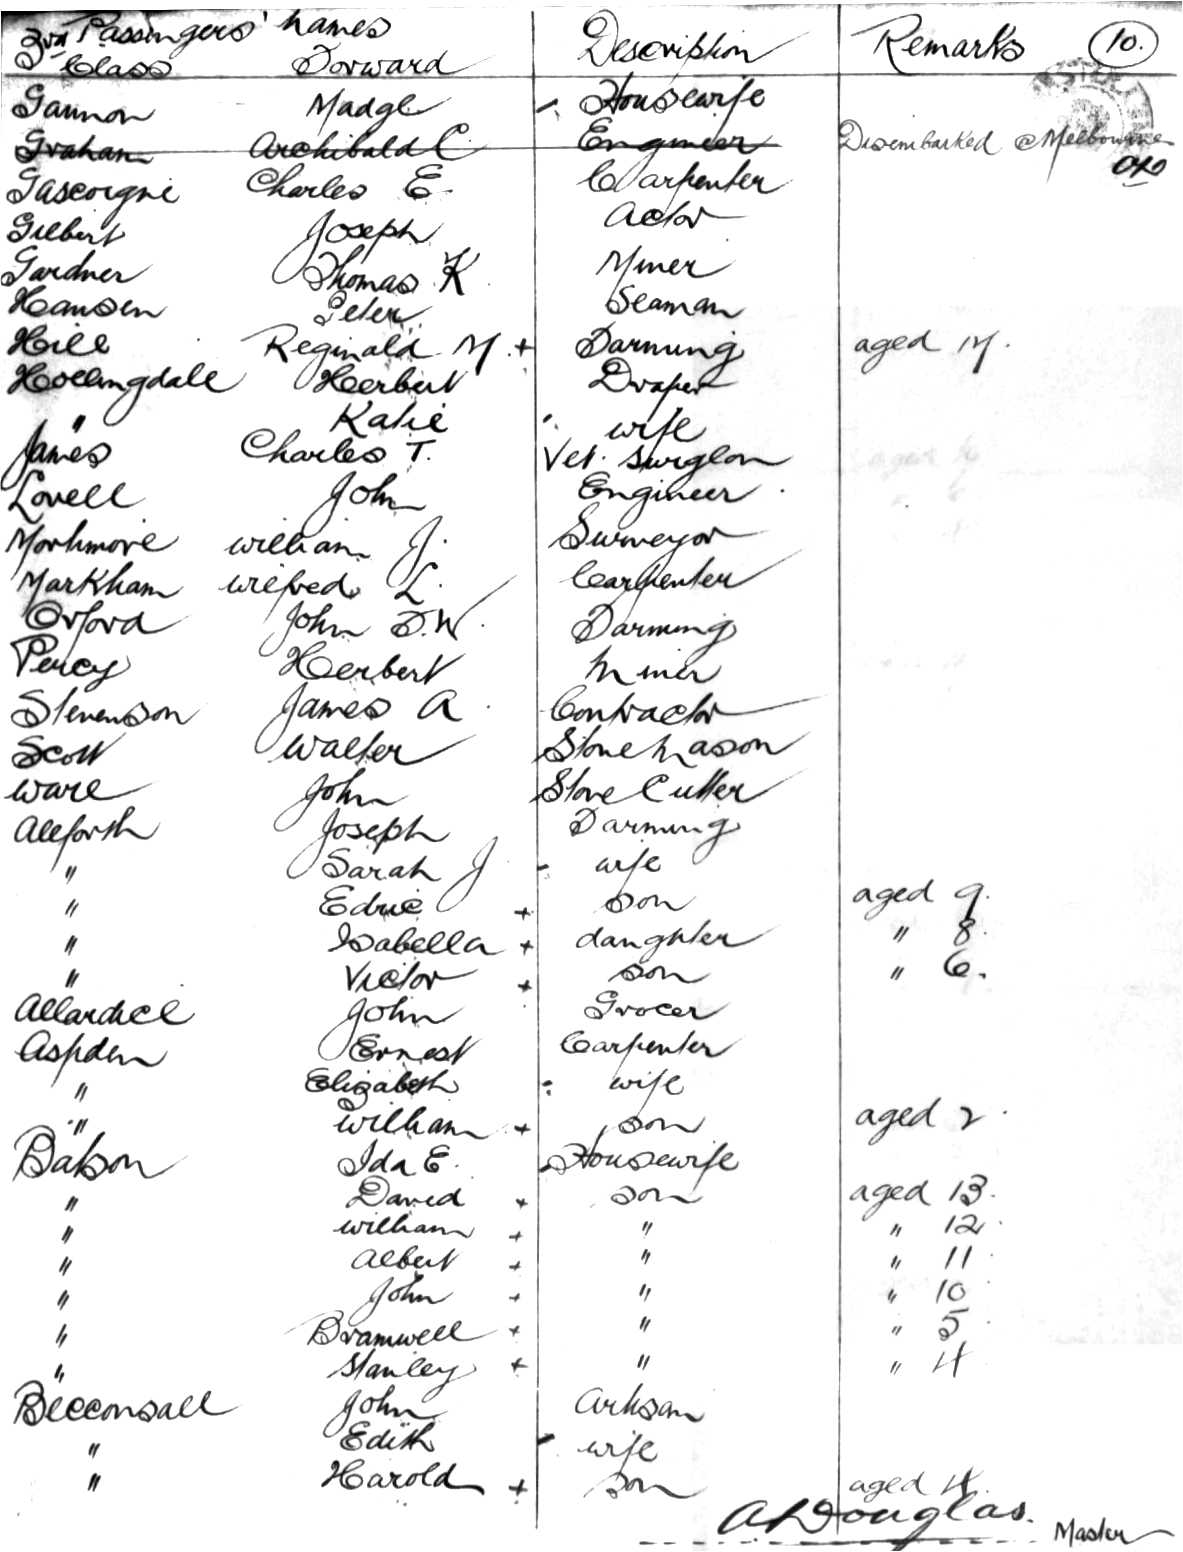 3rd Passengers' names Description Remarks 10.
Class Forward
Gannon Madge Housewife
Graham Archibald C. Engineer Disembarked @ Melbourne
Gascoigne Charles E. Carpenter
Gilbert Joseph Actor
Gardner Thomas K Miner
Hansen Peter Seaman
Hill Reginald M. + Farming aged 14.
Hollingdale Herbert Draper
" Katie wife
James Charles T. Vet. Surgeon
Lovell John Engineer
Mortimore William J. Surveyor
Markham Wilfred L. Carpenter
Orford John F.W. Farming
Percy Herbert Miner
Stevenson James A. Contractor
Scott Walter Stone Mason
Ware John Stone Cutter
Allforth Joseph Farming
" Sarah J - wife
" Edric + son aged 9.
" Isabella + daughter " 8.
" Victor + son " 6.
Allardice John Grocer
Aspden Ernest Carpenter
" Elizabeth wife
" William + son aged 2.
Batson Ida E. Housewife
" David + son aged 13.
" William + " " 12.
" Albert + " " 11
" John + " " 10
" Bramwell + " " 5.
" Stanley + " " 4
Becconsall John Artisan
" Edith - wife
" Harold + son aged 4.
A Douglas. Master